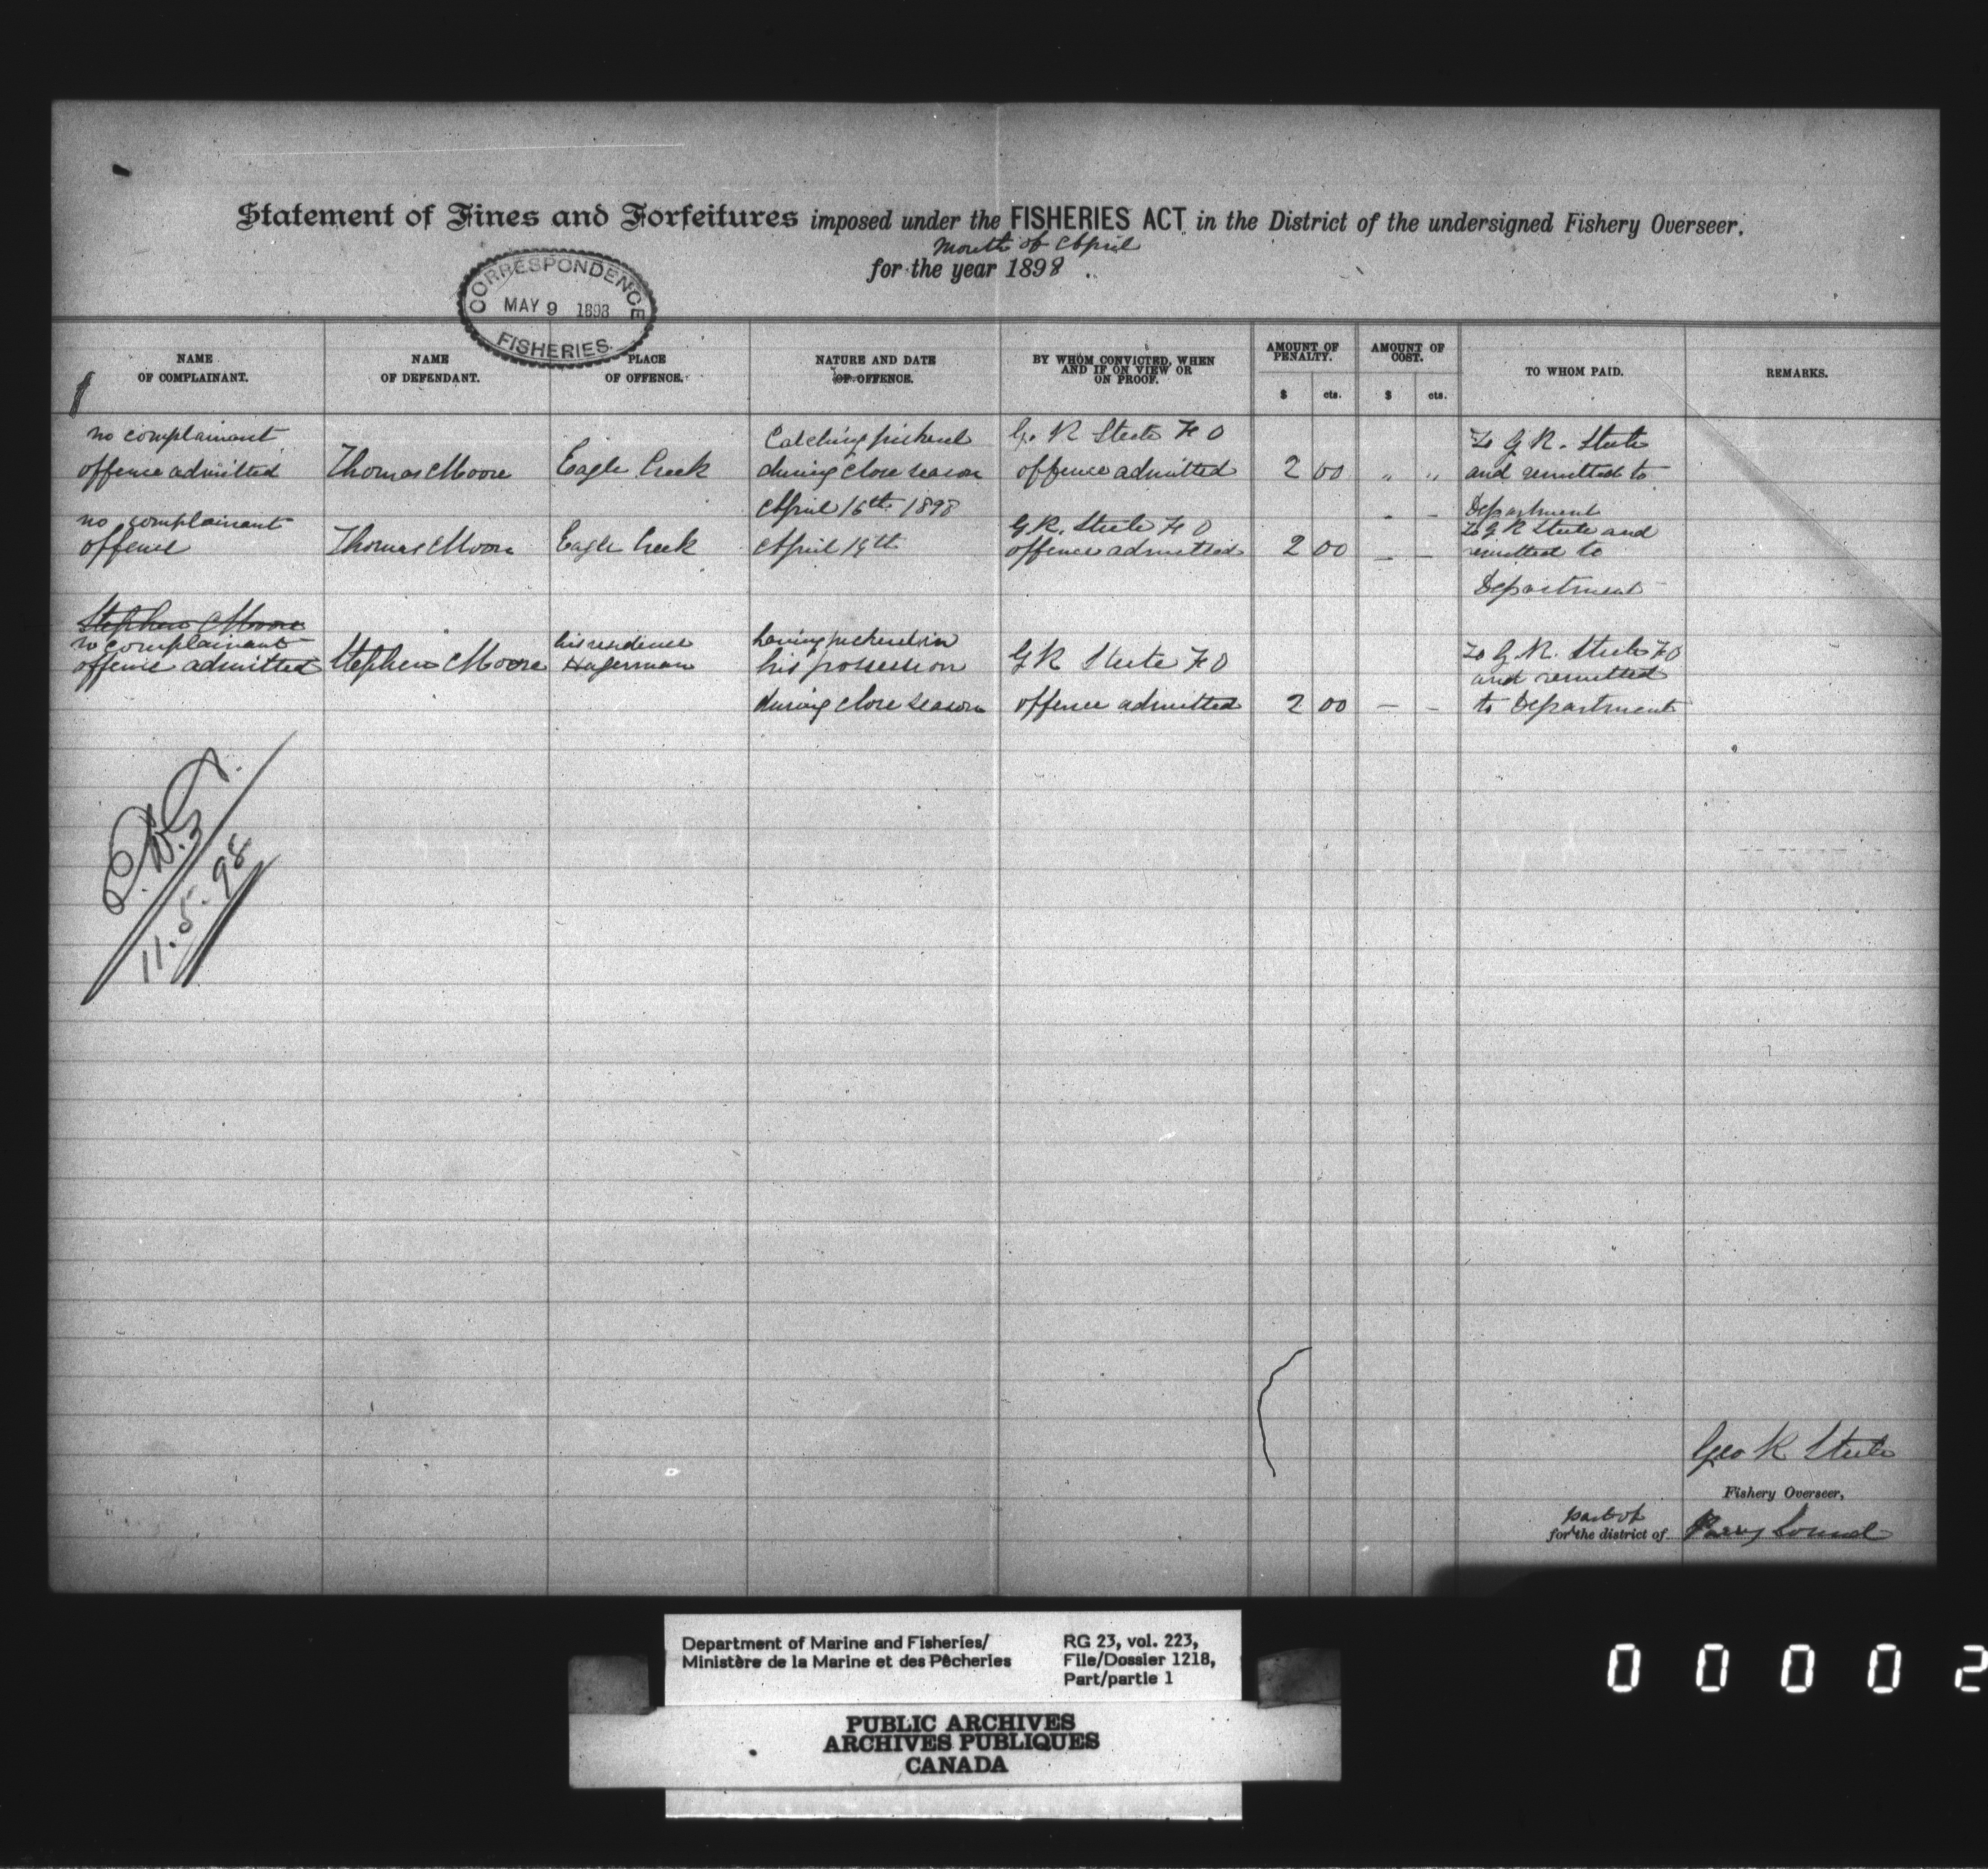 Statement of Fines and Forfeitures imposed under the FISHERIES ACT in the District of the undersigned Fishery Overseer,
month of April
for the year 1898.
CORRESPONDENCE
MAY 9 1898
FISHERIES.
NAME OF COMPLAINANT.
NAME OF DEFENDANT.
PLACE OF OFFENCE.
NATURE AND DATE OF OFFENCE.
BY WHOM CONVICTED, WHEN AND IF ON VIEW OR ON PROOF.
AMOUNT OF PENALTY.
AMOUNT OF COST.
TO WHOM PAID.
REMARKS.
$ cts. $ cts.
no complainant Catching pickerel G. R Steele F O To G R. Steele
offence admitted Thomas Moore Eagle Creek during close season offence admitted 2 00 " " and remitted to
April 16th 1898 - - Department
no complainant G R. Steele F O To G R Steele and
offence Thomas Moore Eagle Creek April 19th offence admitted 2 00 — — remitted to
Department
Stephen Moore
no complainant his residence having pickerel in To G. R. Steele F O
offence admitted Stephen Moore Hagerman his possession G R Steele F O and remitted
during close season offence admitted 2 00 — - to Department
11.5.98
Geo R Steele
Fishery Overseer,
part of
for the district of Parry Sound
Department of Marine and Fisheries/
Ministère de la Marine et des Pêcheries
RG 23, vol. 223,
File/Dossier 1218,
Part/partie 1
PUBLIC ARCHIVES
ARCHIVES PUBLIQUES
CANADA
0 0 0 0 2